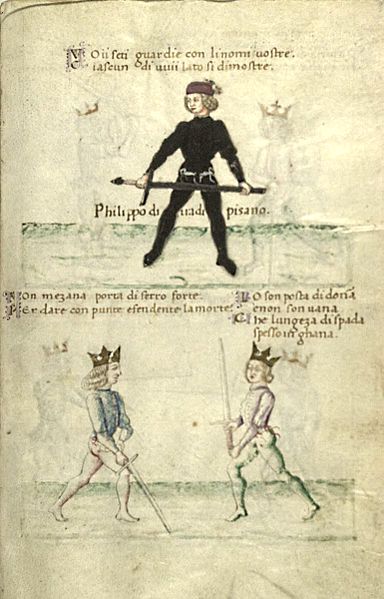 VOii seti guardie con li nomi vostre.
iascun di vuii lato si dimostre.
Philippo di vadi pisano.
on mezana porta di ferro forte.
PEr dare con punte efendente la morte.
IO son posta di donna
enon son vana
Che lungeza di spada
spesso inghana.